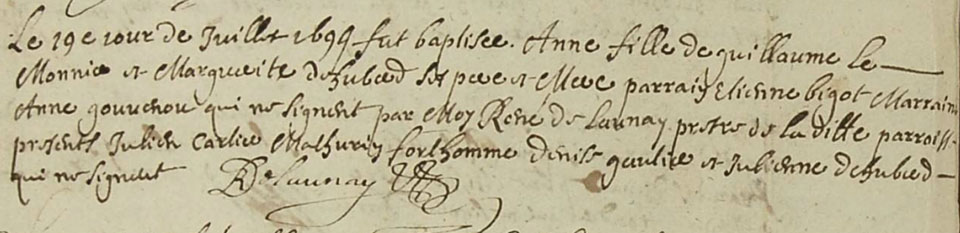 Le 19e jour de Juillet 1694 fut baptisee Anne fille de guillaume le
Monnier et Marguerite dehubed ses pere et Mere parrain Etienne bigot Marraine
Anne gouvenou qui ne signent par Moy Rene de Launay pretre de la ditte parroiss
presents Julien Carlier Mathurin forthomme denise et Julienne dehubed
qui ne signent RDelaunay